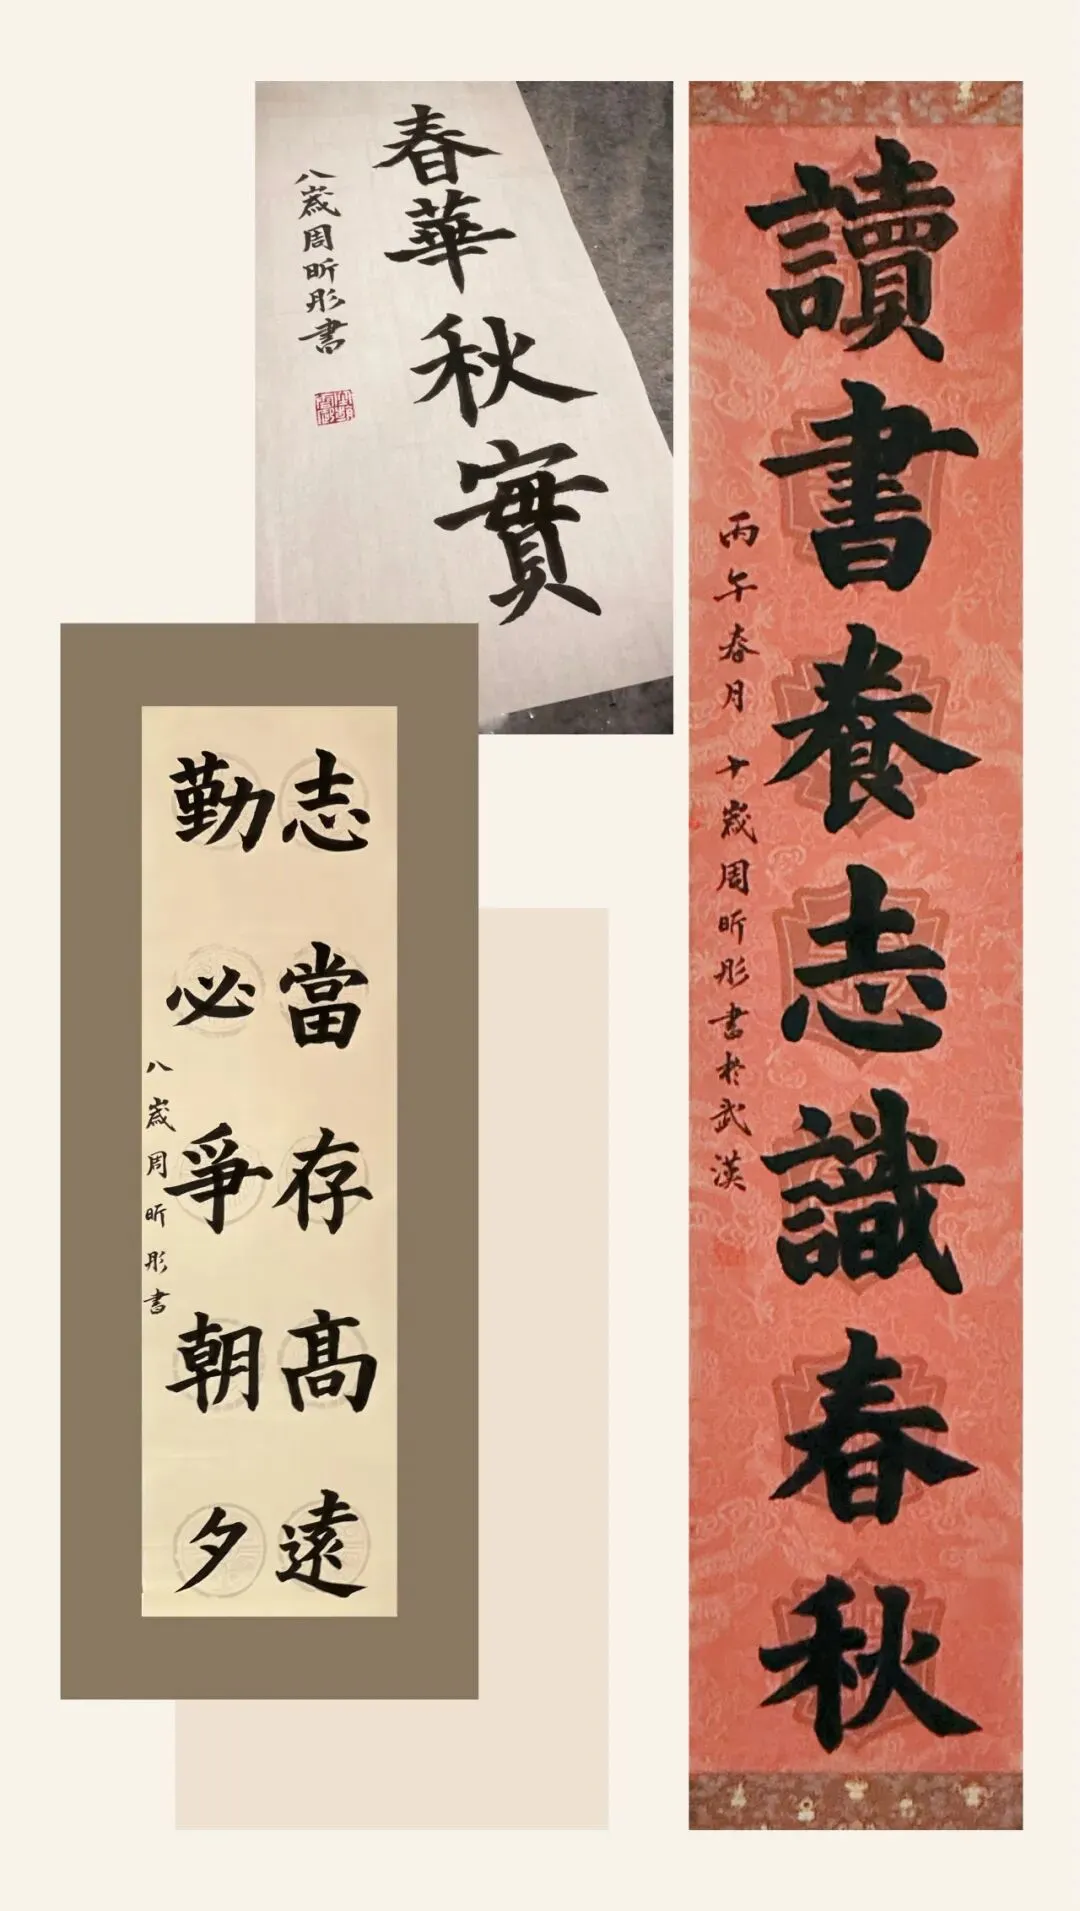 春華秋實
八歲周昕彤書
讀書養志識春秋
丙午春月 十歲周昕彤書於武漢
志當存高遠
勤必爭朝夕
八歲周昕彤書